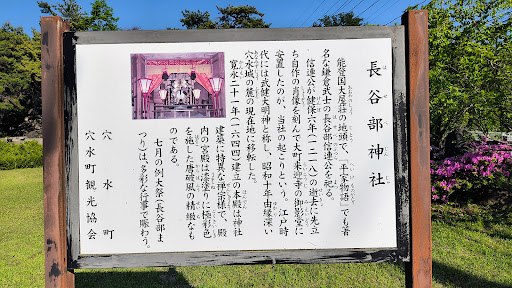 長谷部神社
能登国大屋荘の地頭で、「平家物語」でも著
名な鎌倉武士の長谷部信連公を祀る。
信連公が建保六年(一二一八)の逝去に先立
ち自作の肖像を刻んで大町来迎寺の御影堂に
安置したのが、当社の起こりという。江戸時
代には武健大明神と称し、昭和十年由縁深い
穴水城の麓の現在地に移転した。
寛永二十一年(一六四四)建立の本殿は神社
建築に特異な禅宗様で、殿
内の宮殿は漆塗りに極彩色
を施した唐破風の精緻なも
のである。
七月の例大祭(長谷部ま
つり)は、多彩な行事で賑わう。
穴水町
穴水町観光協会